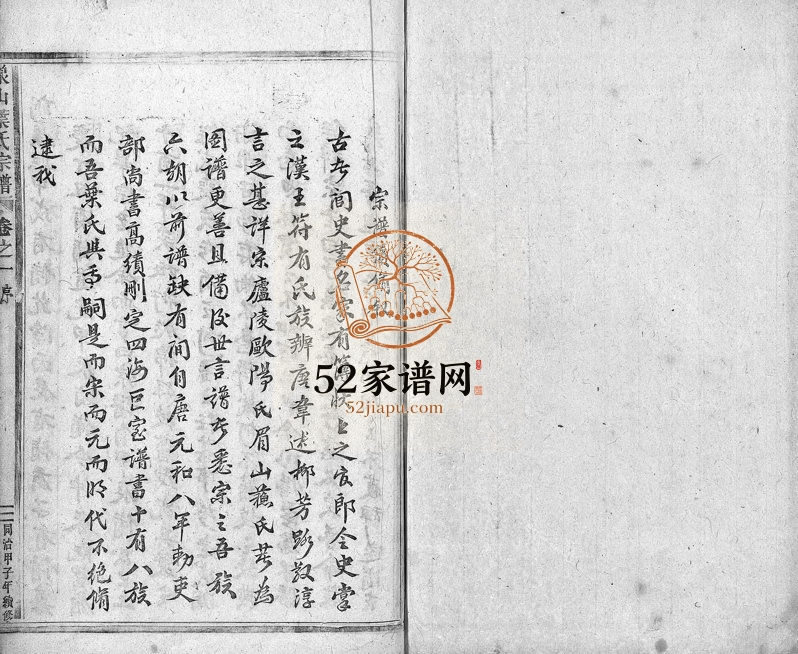 宗譜續脩
古者閭史書名家有簿狀上之官郎令史掌
之漢王符有氏族辨唐韋述柳芳路敬淳
言之甚詳宗廬陵歐陽氏眉山蘇氏其為
圖譜更善且備後世言譜者悉宗之吾族
六朝以前譜缺有間自唐元和八年勅吏
部尚書高績刪定四海巨室譜書十有八族
而吾葉氏與焉嗣是而宋而元而明代不絕脩
逮我
山葉氏宗譜
卷之一
序
同治甲子年續修
52家谱网
52jiapu.com